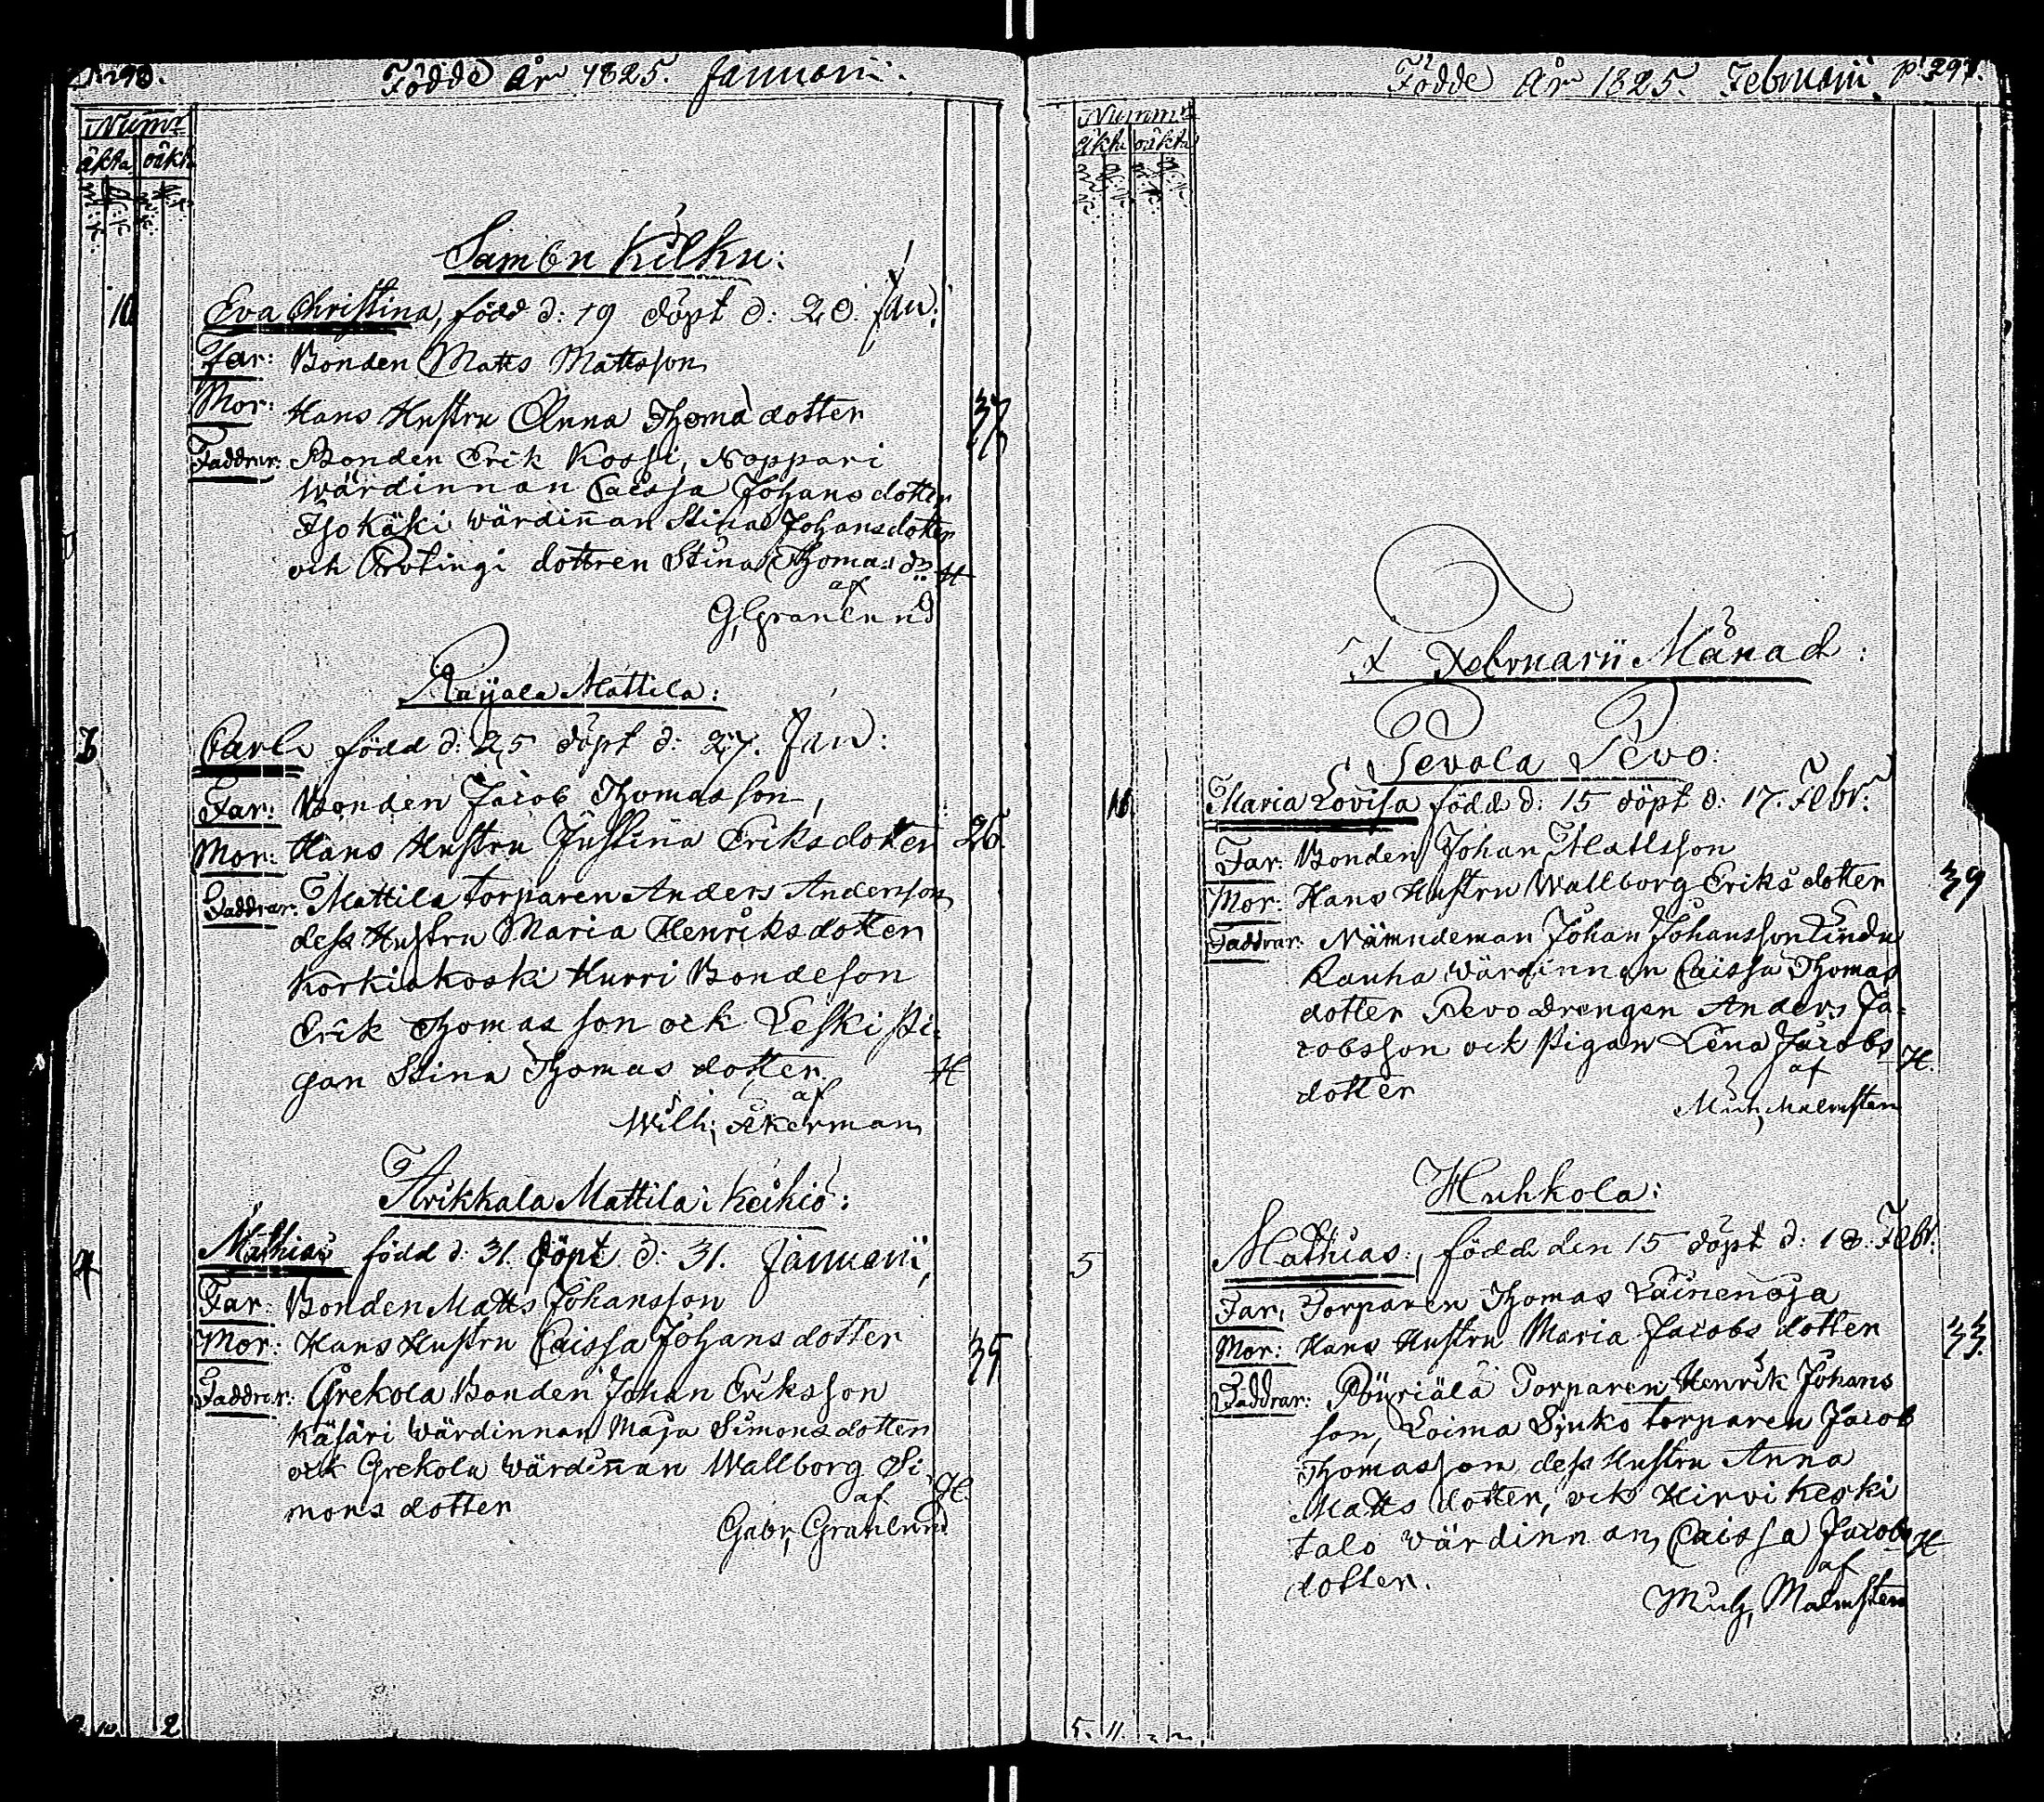 Födde År 1825. Januarii.
Num:r
äkta oäkta
Samon Kilku:
10 Eva Christina, född d: 19 döpt d: 20. Jan:
Far: Bonden Matts Mattsson
Mor: Hans Hustru Anna Thomadotter 37
Faddrar: Bonden Erik Kossi, Noppari
wärdinnan Caissa Johansdotter
Iso Käki wärdinnan Stina Johansdotter
och Protingi dottren Stina Thomas dr H
af
G, Granlund
Raijala Mattila:
3 Carl född d: 25 döpt d: 27. Jan:
Far: Bonden Jacob Thomasson,
Mor: Hans Hustru Justina Eriksdotter 26.
Faddrar: Mattila torparen Anders Andersson
dess Hustru Maria Henriksdotter
Korkiakoski Hurri Bondeson
Erik Thomasson och Leski Pi-
gan Stina Thomas dotter H
af
Wilh; Åkerman
Arikkala Mattila i Keikiö:
4 Mathias född d: 31. döpt d: 31. Januarii,
Far: Bonden Matts Johansson
Mor: Hans Hustru Caissa Johansdotter 35
Faddrar: Grekola Bonden Johan Eriksson
Käsäri Wärdinnan Maja Simonsdotter
och Grekola wärdinnan Wallborg Si-
mons dotter af H.
Gabr, Granlund
10. 2
Födde År 1825. Februarii. p. 291.
Numm:r
äkta oäkta
Februarii Månad:
Sevola Pevo:
11. Maria Lovisa född d: 15 döpt d: 17. Febr:
Far: Bonden Johan Mattsson
Mor: Hans Hustru Wallborg Eriks dotter 39
Faddrar: Nämndeman Johan Johansson Lindu
Rauha Wärdinnan Caissa Thomas
dotter Pevo drengen Anders Ja-
cobsson och Pigan Lena Jacobs H.
dotter af
Mich, Malmsten
Huhkola:
5 Mathias, född den 15 döpt d: 18. Febr:
Far: Torparen Thomas Lainenoja
Mor: Hans Hustru Maria Jacobs dotter 33.
Faddrar: Pöyriälä Torparen Henrik Johans
son, Loima Sjuko torparen Jacob
Thomasson dess Hustru Anna
Matts dotter, och Hirvikoski
talo wärdinnan, Caissa Jacobs H
dotter. af
Mich, Malmsten
5. 11.